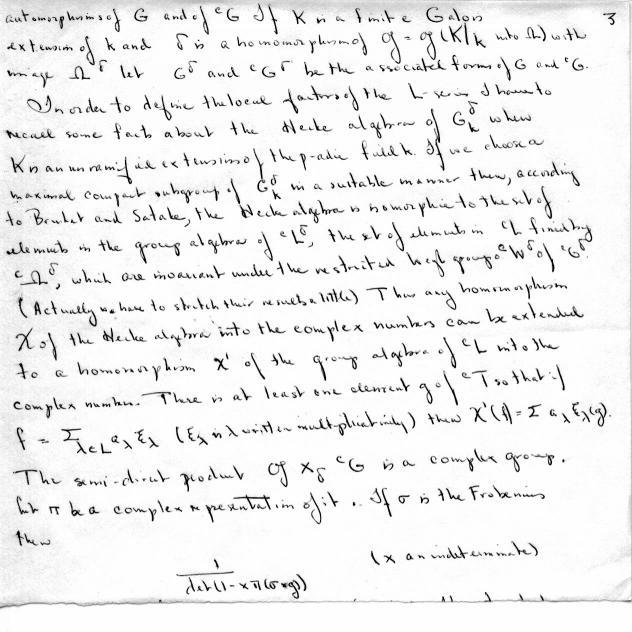 3
automorphisms of G and of ᶜG If K is a finite Galois
extension of k and δ is a homomorphism of 𝔤 = 𝔤(K/k into Ω) with
image Ω^δ let G^δ and ᶜG^δ be the associated forms of G and ᶜG.
In order to define the local factors of the L-series I have to
recall some facts about the Hecke algebra of G_k^δ when
K is an unramified extension of the p-adic field k. If we choose a
maximal compact subgroup of G_k^δ in a suitable manner then, according
to Bruhat and Satake, the Hecke algebra is isomorphic to the set of
elements in the group algebra of ᶜL^δ, the set of elements in ᶜL fixed by
ᶜΩ^δ, which are invariant under the restricted Weyl group ᶜW^δ of ᶜG^δ.
(Actually we have to stretch their results a little) Thus any homomorphism
χ of the Hecke algebra into the complex numbers can be extended
to a homomorphism χ' of the group algebra of ᶜL into the
complex numbers. There is at least one element g of ᶜT so that if
f = Σ_{λ∈L} a_λ ξ_λ (ξ_λ is λ written multiplicatively) then χ'(f) = Σ a_λ ξ_λ(g).
The semi-direct product 𝔤 ×_δ ᶜG is a complex group.
Let π be a complex representation of it. If σ is the Frobenius
then
1/det(1 - x π(σ×g)) (x an indeterminate)